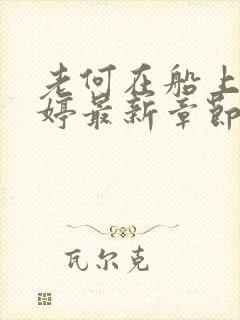 老何在船上
婷最新章节
瓦尔克